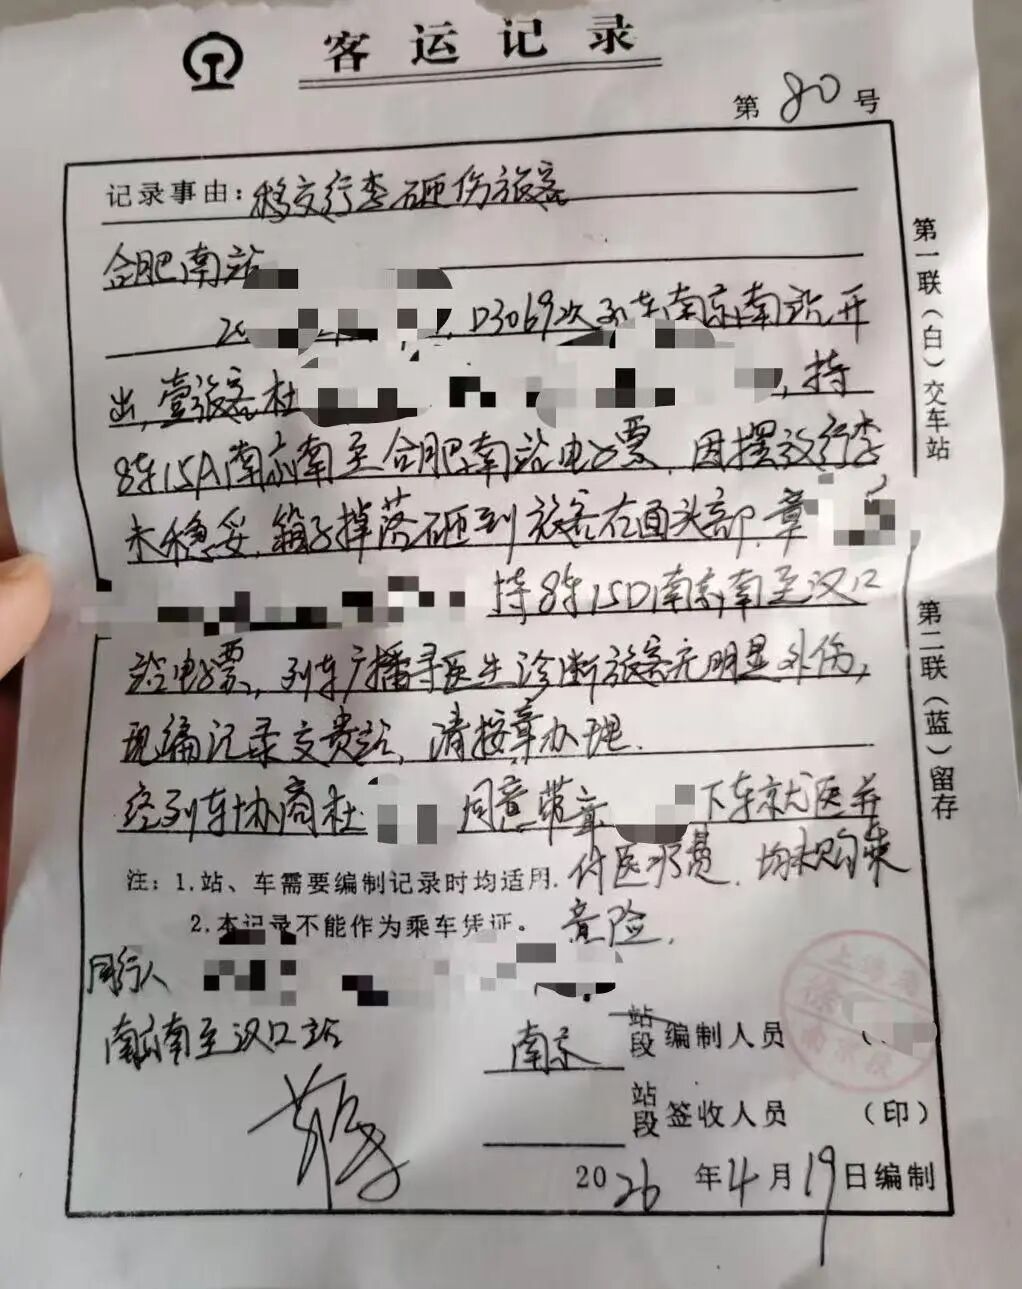 客运记录
第 80 号
记录事由：移交行李砸伤旅客
合肥南站
20 D3069次列车南京南站开
出，壹旅客杜 ，持
8车15A南京南至合肥南站电子票，因摆放行李
未稳妥，箱子掉落砸到旅客右面头部，章
持8车15D南京南至汉口
站电子票，列车广播寻医生诊断旅客无明显外伤，
现编记录交贵站，请按章办理.
经列车协商杜 同意带章 下车就医并
付医疗费，均未购乘
意险.
注：1.站、车需要编制记录时均适用.
2.本记录不能作为乘车凭证。
同行人
南京南至汉口站
南京 站段 编制人员
站段 签收人员 （印）
2026年4月19日编制
第一联（白）交车站
第二联（蓝）留存
上海局
徐
南京段